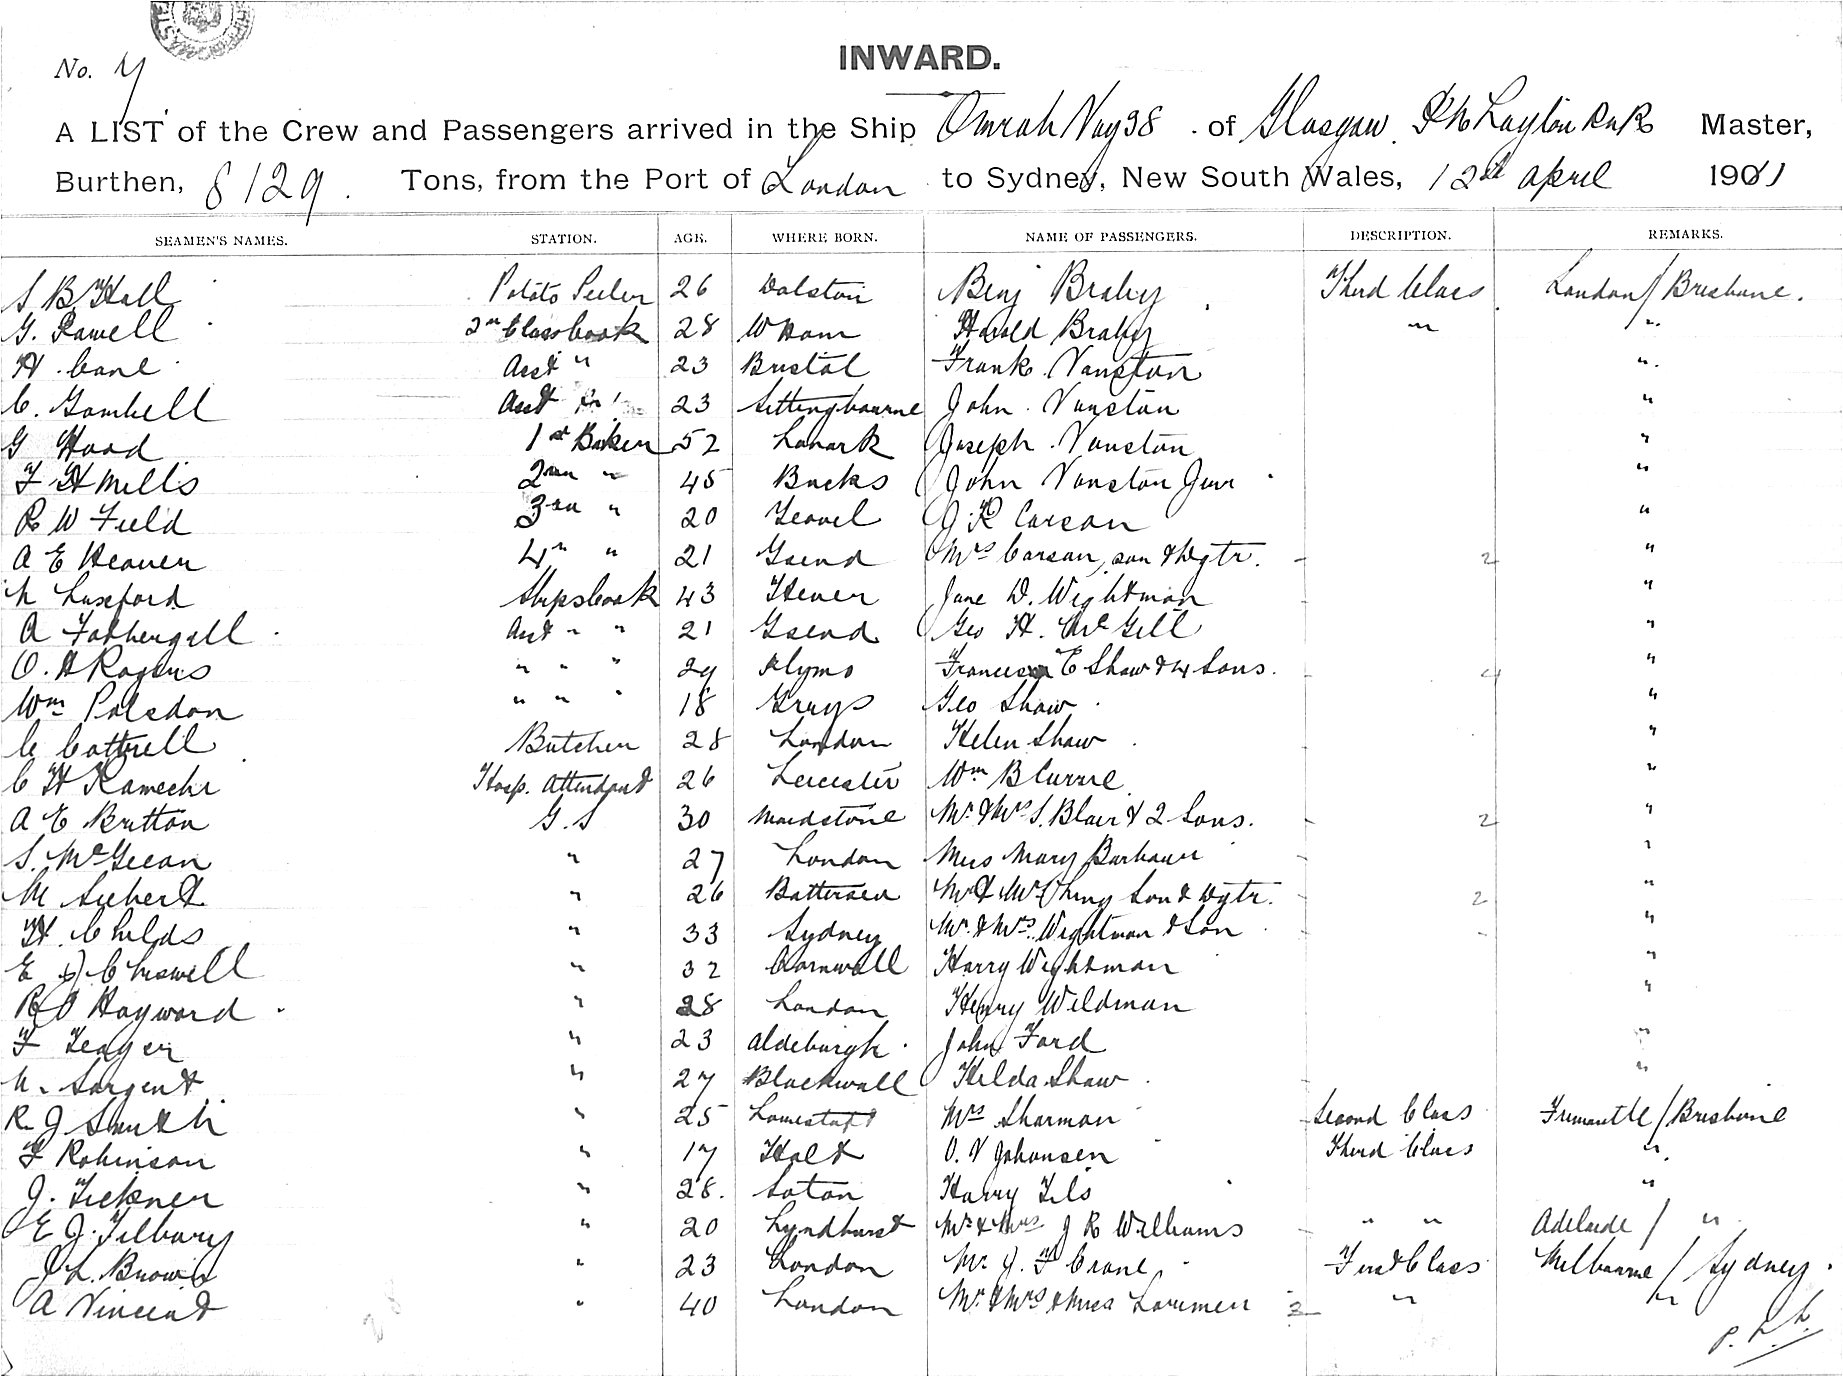 No. 7
INWARD.
A LIST of the Crew and Passengers arrived in the Ship Omrah Voy 38 of Glasgow Layton RNR Master,
Burthen, 8129. Tons, from the Port of London to Sydney, New South Wales, 12th April 1901
SEAMEN'S NAMES. STATION. AGE. WHERE BORN. NAME OF PASSENGERS. DESCRIPTION. REMARKS.
S B Hall Potato Peeler 26 Dalston Benj Braby Third Class London / Brisbane.
G. Rawell 2nd Class Cook 28 W Ham Harold Braby " "
H. Cane Asst " 23 Bristol Frank Vanston "
C. Gambell Asst 23 Sittingbourne John Vanston "
G Hood 1st Baker 52 Lanark Joseph Vanston "
F H Mills 2nd " 45 Bucks John Vanston Junr "
R W Field 3rd " 20 Yeovil J R Carson "
A E Heaven 4th " 21 Gsend Mrs Carson, son & Dgtr. 2 "
Luxford Ships Cook 43 Hever Jane D. Wightman "
A Fothergill Asst " " 21 Gsend Geo H. McGill "
O. H Rogers " " " 29 Plymo E Shaw & 4 Sons. 4 "
Wm Polsdon " " " 18 Grays Geo Shaw "
C Cottrell Butcher 28 London Helen Shaw "
C H Hosp. Attendant 26 Leicester Wm B Currie "
A E Britton G.S 30 Maidstone Mr & Mrs S. Blair & 2 Sons. 2 "
S. McGeean " 27 London Miss Mary Barbour "
M Siebert " 26 Battersea Mr & Mrs Ching Son & Dgtr. 2 "
H. Childs " 33 Sydney Mr. & Mrs. Wightman & Son "
E Chiswell " 32 Cornwall Harry Wightman "
Hayward " 28 London Henry Wildman "
F Teager " 23 Aldeburgh John Ford "
Sargent " 27 Blackwall Hilda Shaw "
R J Smith " 25 Lowestoft Mrs Sharman Second Class Fremantle / Brisbane
F Robinson " 17 Holt O. V Johansen Third Class "
J. Tickner " 28. Soton Harry Tils "
E J. Tilbury " 20 Lyndhurst Mr & Mrs J R Williams " " Adelaide / "
J L. Brown " 23 London Mr J. F Crane First Class Melbourne / Sydney.
A Vincent " 40 London Mr. & Mrs & Miss Lorimer 3 " "